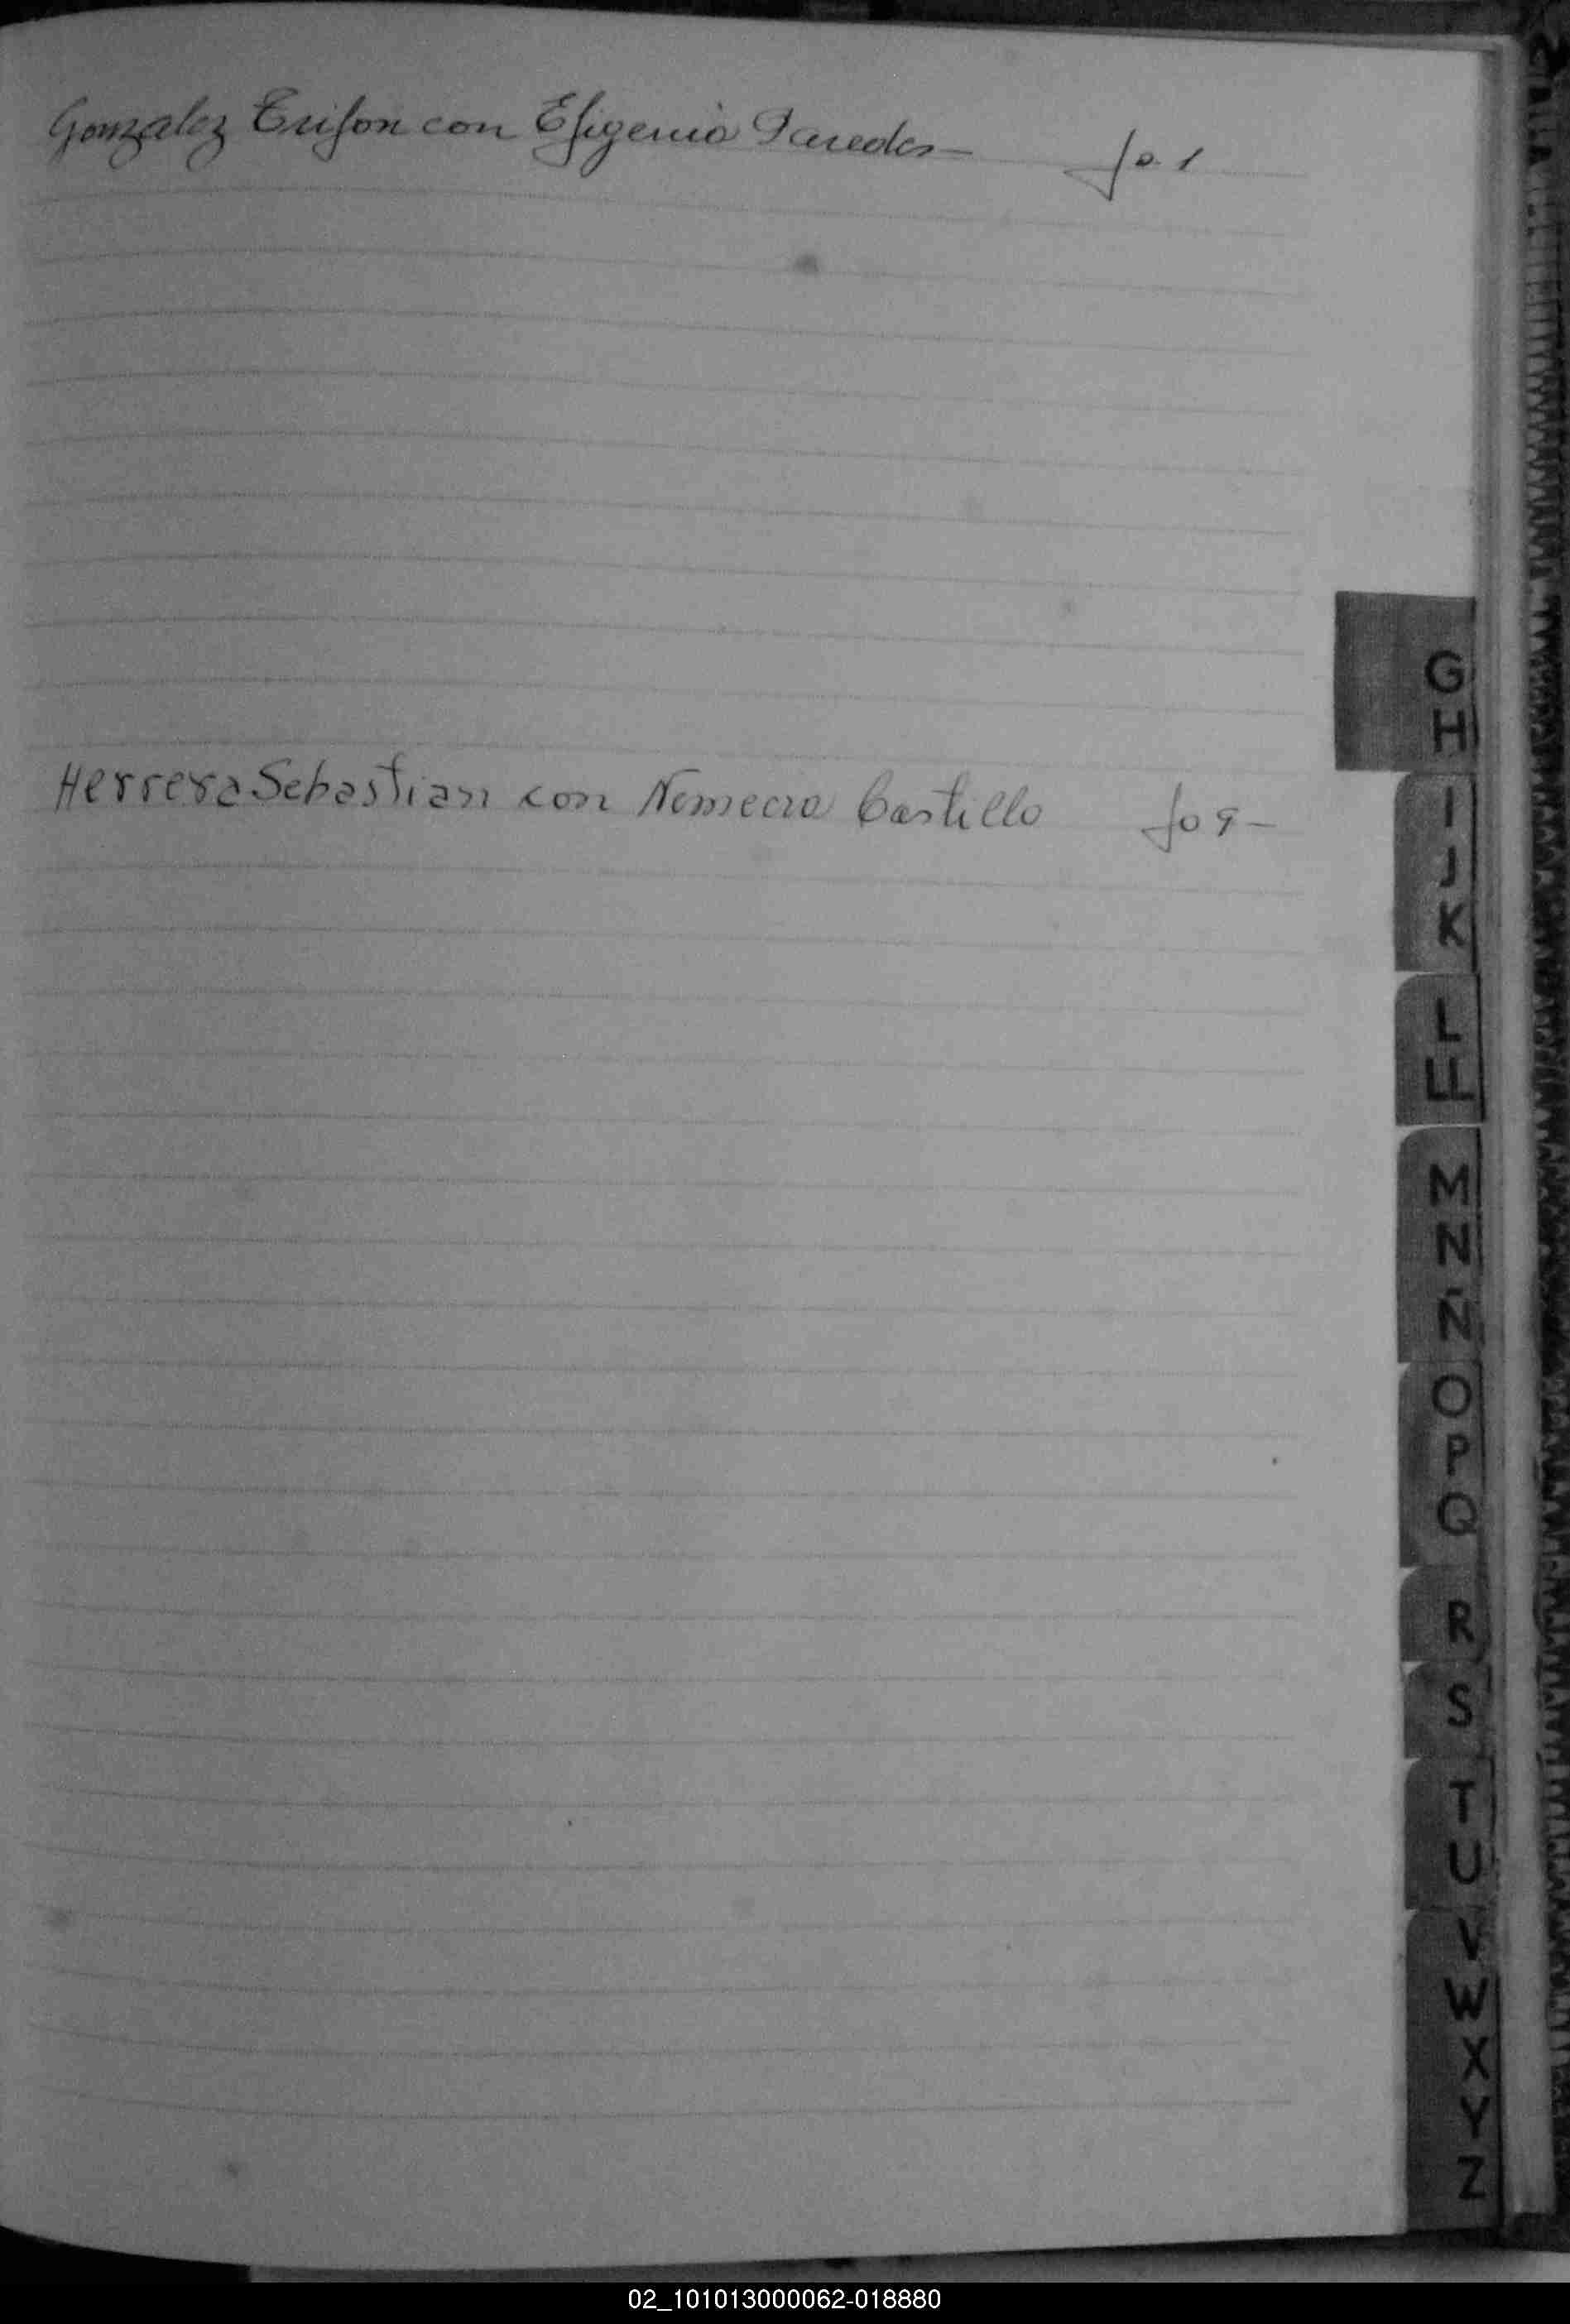 Gonzalez Trifon con Efigenia Paredes— fo. 1
Herrera Sebastian con Nemecia Castillo fo 9—
G
H
I
J
K
L
LL
M
N
Ñ
O
P
Q
R
S
T
U
V
W
X
Y
Z
02_101013000062-018880